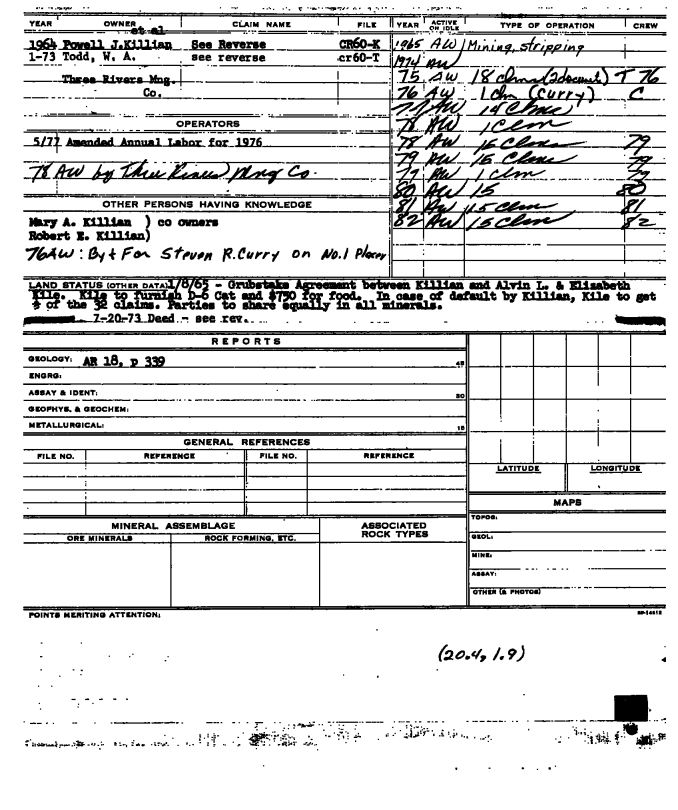 YEAR OWNER CLAIM NAME FILE YEAR ACTIVE OR IDLE TYPE OF OPERATION CREW
et al
1964 Powell J.Killian See Reverse CR60-K 1965 AW Mining, stripping
1-73 Todd, W. A. see reverse cr60-T 1974 AW
Three Rivers Mng. 75 AW 18 clms T 76
Co. 76 AW 1 clm (Curry) C
77 AW 14 Clms
OPERATORS 78 AW 1 Clm
5/77 Amended Annual Labor for 1976 78 AW 15 Clms 79
79 AW 15 Clms 79
78 AW by Three Rivers Mng Co. 79 AW 1 Clm 79
80 AW 15 80
OTHER PERSONS HAVING KNOWLEDGE 81 AW 15 Clm 81
Mary A. Killian ) co owners 82 AW 15 Clm 82
Robert E. Killian)
76AW: By + For Steven R. Curry on No.1 Placer
LAND STATUS (OTHER DATA) 1/8/65 - Grubstake Agreement between Killian and Alvin L. & Elizabeth
Kile. Kile to furnish D-6 Cat and $750 for food. In case of default by Killian, Kile to get
of the 32 claims. Parties to share equally in all minerals.
7-20-73 Deed - see rev.
REPORTS
GEOLOGY: AR 18, p 339 45
ENGRG:
ASSAY & IDENT: 30
GEOPHYS. & GEOCHEM:
METALLURGICAL: 15
GENERAL REFERENCES
FILE NO. REFERENCE FILE NO. REFERENCE
LATITUDE LONGITUDE
MAPS
MINERAL ASSEMBLAGE ASSOCIATED ROCK TYPES
ORE MINERALS ROCK FORMING, ETC.
TOPOG:
GEOL:
MINE:
ASSAY:
OTHER (& PHOTOS)
POINTS MERITING ATTENTION:
(20.4, 1.9)